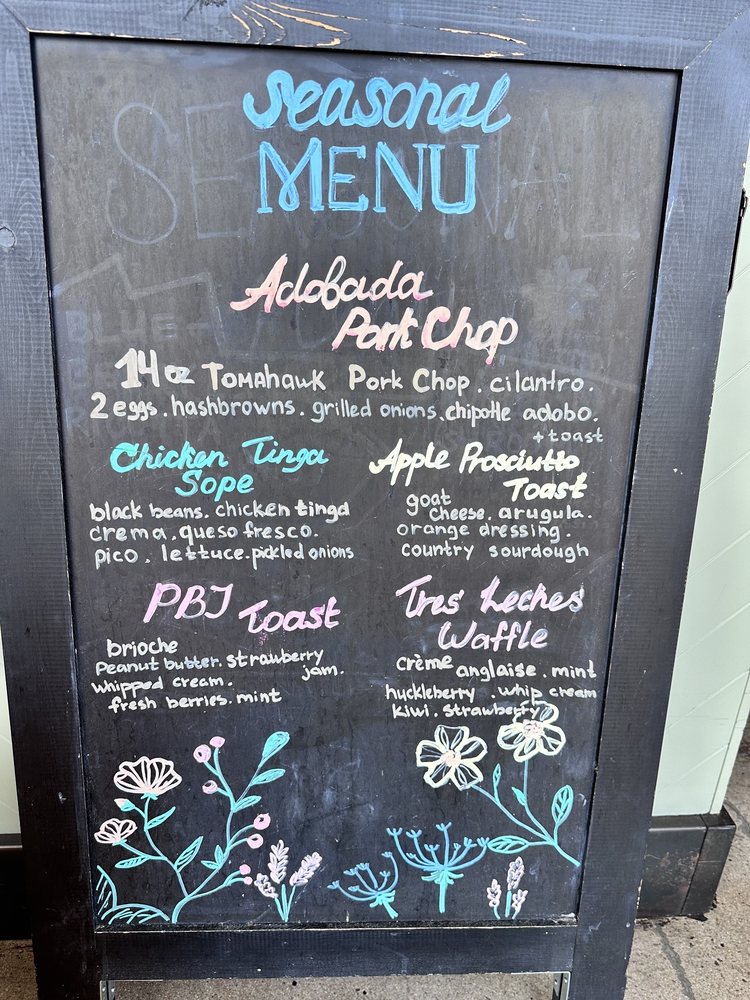 Seasonal
MENU
Adobada
Pork Chop
14oz Tomahawk Pork Chop. cilantro.
2 eggs. hashbrowns. grilled onions. chipotle adobo.
+ toast
Chicken Tinga
Sope
black beans. chicken tinga
crema. queso fresco.
pico. lettuce. pickled onions
Apple Prosciutto
Toast
goat
cheese. arugula.
orange dressing.
country sourdough
PBJ Toast
brioche
Peanut butter. strawberry
jam.
whipped cream.
fresh berries. mint
Tres Leches
Waffle
crème anglaise. mint
huckleberry. whip cream
kiwi. strawberry